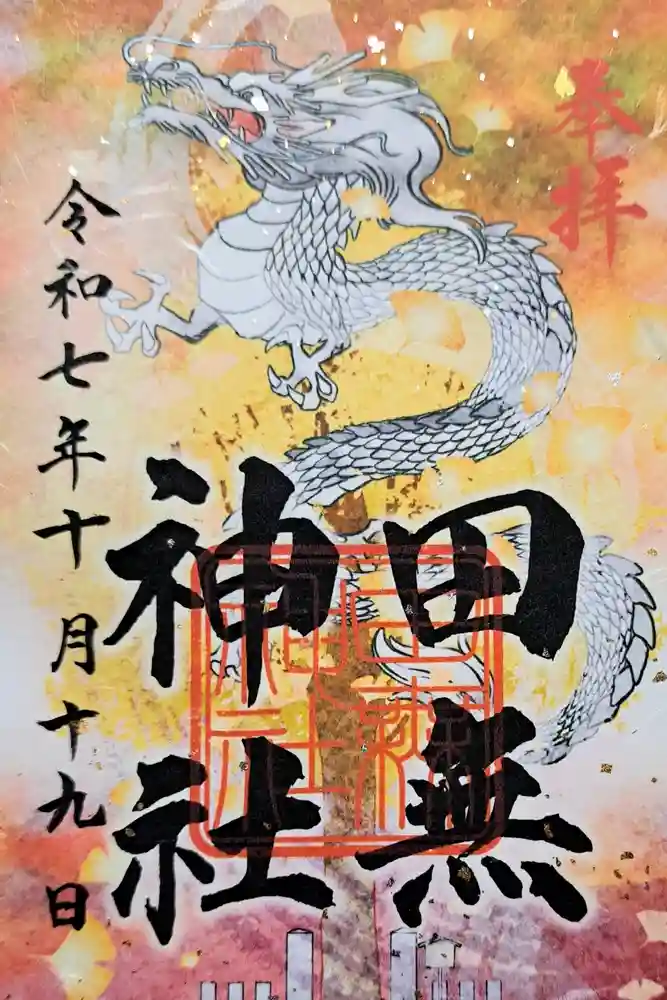 奉拝
田無
神社
令和七年十月十九日